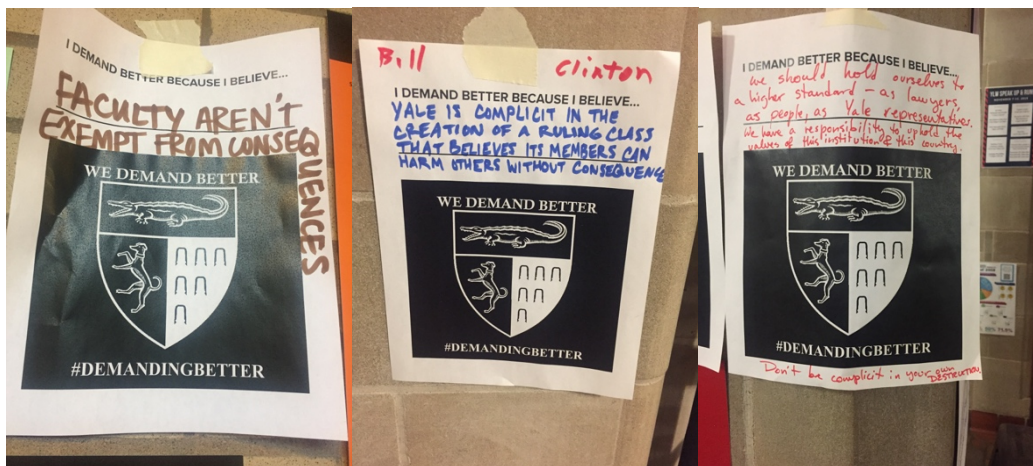 I DEMAND BETTER BECAUSE I BELIEVE...
FACULTY AREN'T
EXEMPT FROM CONSEQUENCES
WE DEMAND BETTER
#DEMANDINGBETTER
Bill Clinton
I DEMAND BETTER BECAUSE I BELIEVE...
YALE IS COMPLICIT IN THE
CREATION OF A RULING CLASS
THAT BELIEVES ITS MEMBERS CAN
HARM OTHERS WITHOUT CONSEQUENCE
WE DEMAND BETTER
#DEMANDINGBETTER
I DEMAND BETTER BECAUSE I BELIEVE...
we should hold ourselves to
a higher standard - as lawyers,
as people, as Yale representatives.
We have a responsibility to uphold the
values of this institution & this country.
WE DEMAND BETTER
#DEMANDINGBETTER
Don't be complicit in your own
DESTRUCTION